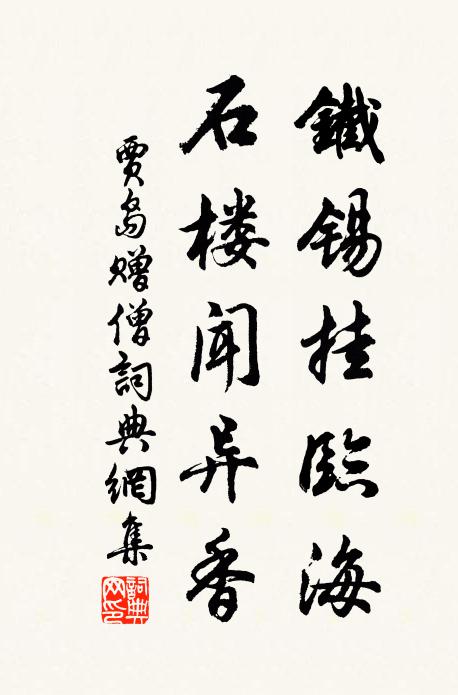 鐵錫挂臨海
石楼聞异香
賈島赠僧詞典網集
詞典网印